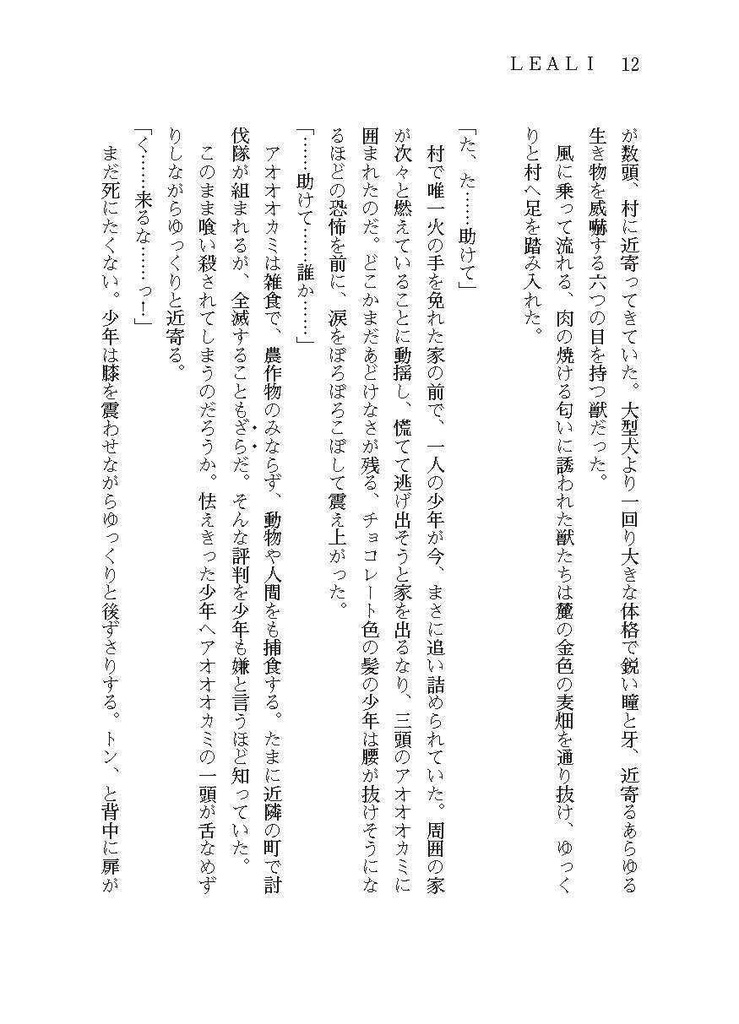 ＬＥＡＬＩ　12
が数頭、村に近寄ってきていた。大型犬より一回り大きな体格で鋭い瞳と牙、近寄るあらゆる
生き物を威嚇する六つの目を持つ獣だった。
　風に乗って流れる、肉の焼ける匂いに誘われた獣たちは麓の金色の麦畑を通り抜け、ゆっく
りと村へ足を踏み入れた。
「た、た……助けて」
　村で唯一火の手を免れた家の前で、一人の少年が今、まさに追い詰められていた。周囲の家
が次々と燃えていることに動揺し、慌てて逃げ出そうと家を出るなり、三頭のアオオオカミに
囲まれたのだ。どこかまだあどけなさが残る、チョコレート色の髪の少年は腰が抜けそうにな
るほどの恐怖を前に、涙をぽろぽろこぼして震え上がった。
「……助けて……誰か……」
　アオオオカミは雑食で、農作物のみならず、動物や人間をも捕食する。たまに近隣の町で討
伐隊が組まれるが、全滅することもざらだ。そんな評判を少年も嫌と言うほど知っていた。
　このまま喰い殺されてしまうのだろうか。怯えきった少年へアオオオカミの一頭が舌なめず
りしながらゆっくりと近寄る。
「く……来るな……っ！」
　まだ死にたくない。少年は膝を震わせながらゆっくりと後ずさりする。トン、と背中に扉が